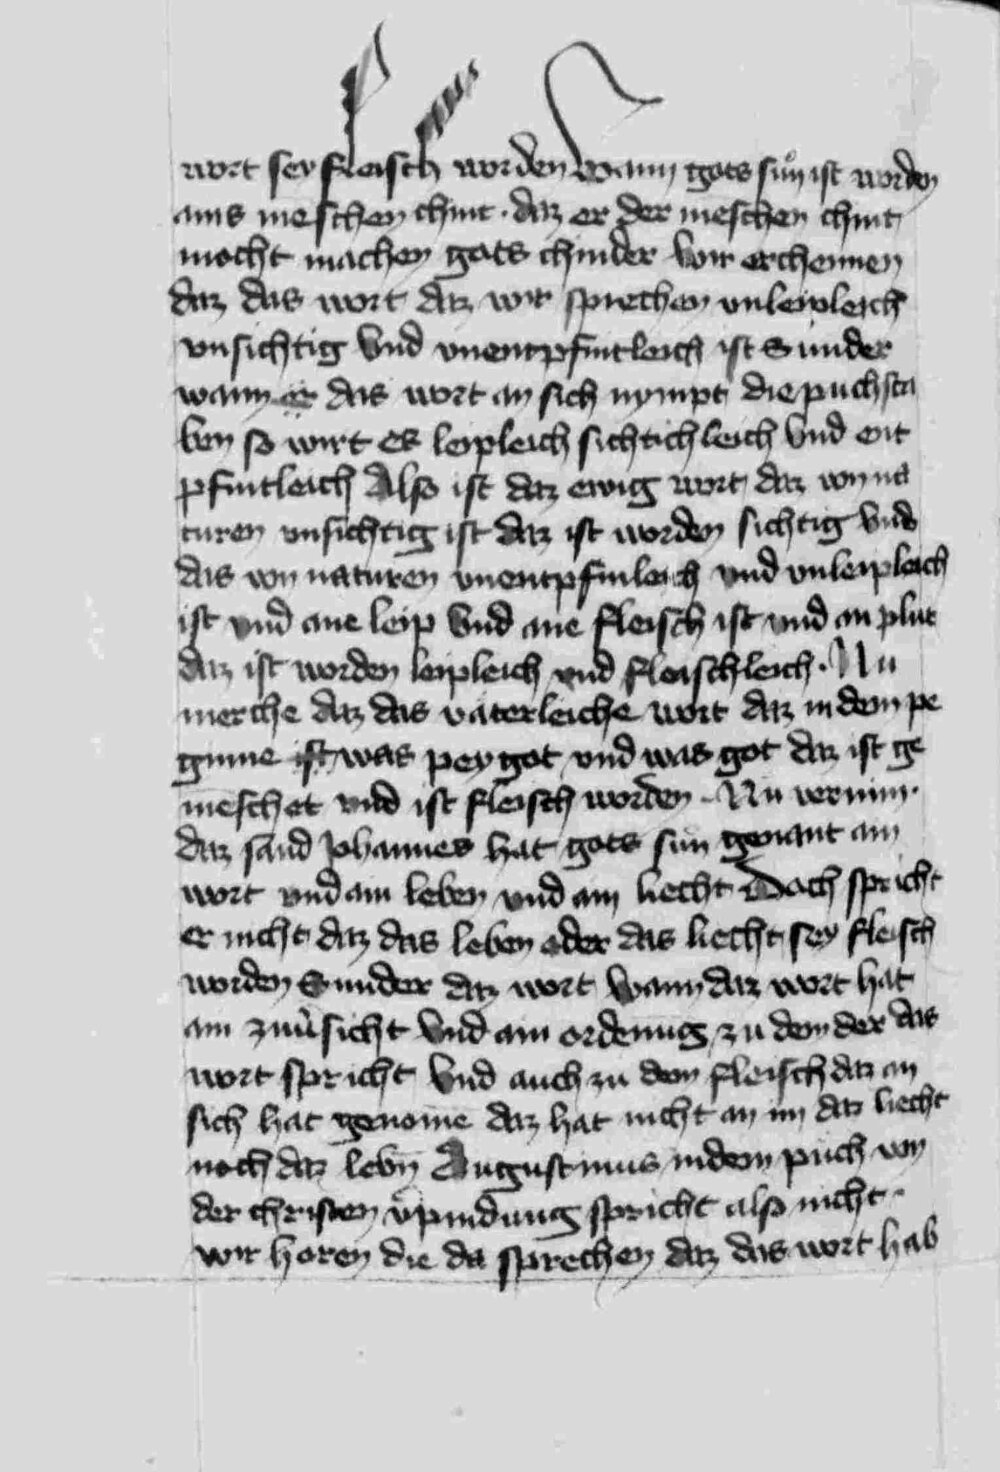 wort sey fleisch worden Wann gots sun ist worden
ains meschen chint · daz er der meschen chint
mocht machen gots chinder Wir erchennen
daz das wort daz wir sprechen vnleipleich
vnsichtig Vnd vnentpfintleich ist Sunder
wann er das wort an sich nympt die puchsta
ben so wirt es leipleich sichtichleich Vnd ent
pfintleich Also ist daz ewig wort daz von na
turen vnsichtig ist daz ist worden sichtig Vnd
das von naturen vnentpfinleich vnd vnleipleich
ist vnd ane leip Vnd ane fleisch ist vnd an plut
daz ist worden leipleich vnd fleischleich · Nu
merche daz das vaterleiche wort daz in dem pe
ginne ist was pey got vnd was got daz ist ge
meschet vnd ist fleisch worden · Nu vernim ·
daz sand Johannes hat gots sun genant ain
wort vnd ain leben vnd ain liecht Doch spricht
er nicht daz das leben oder das liecht sey fleisch
worden Sunder daz wort Wann daz wort hat
ain zuusicht Vnd ain ordenung zu dem der das
wort spricht Vnd auch zu dem fleisch daz an
sich hat genome daz hat nicht an im daz liecht
noch daz lebn Augustinus in dem puch von
der christen vpindung spricht also nicht ·
wir horen die da sprechen daz das wort hab